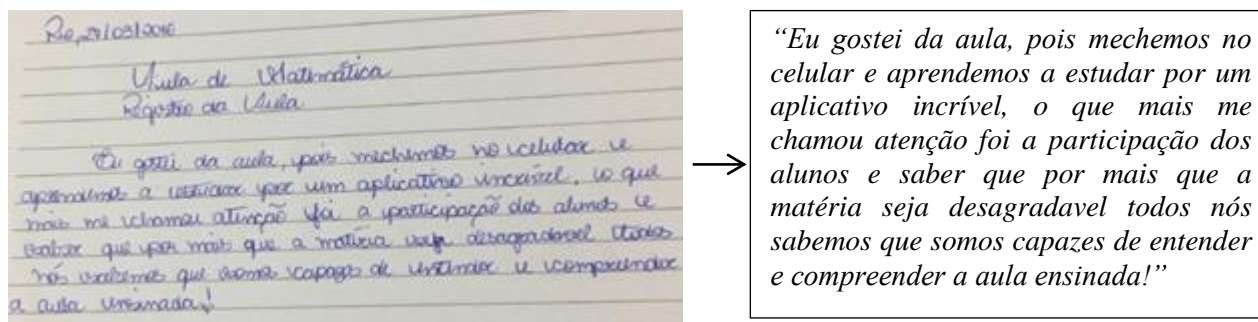 Rio, 21/03/2016
Aula de Matemática
Registro da Aula
Eu gostei da aula, pois mechemos no celular e
aprendemos a estudar por um aplicativo incrível, o que
mais me chamou atenção foi a participação dos alunos e
saber que por mais que a matéria seja desagradavel todos
nós sabemos que somos capazes de entender e compreender
a aula ensinada!
“Eu gostei da aula, pois mechemos no
celular e aprendemos a estudar por um
aplicativo incrível, o que mais me
chamou atenção foi a participação dos
alunos e saber que por mais que a
matéria seja desagradavel todos nós
sabemos que somos capazes de entender
e compreender a aula ensinada!”